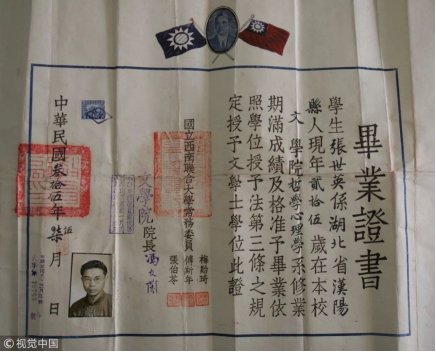 畢業證書
學生張世英係湖北省漢陽
縣人現年貳拾伍歲在本校
文學院哲學心理學系修業
期滿成績及格准予畢業依
照學位授予法第三條之規
定授予文學士學位此證
國立西南聯合大學常務委員
梅貽琦
傅斯年
張伯苓
文學院院長馮友蘭
中華民國叁拾伍年柒月 日
视觉中国